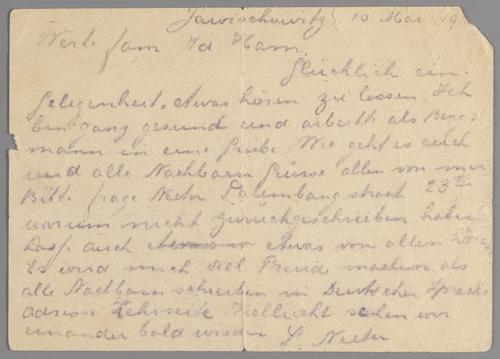 Jawischowitz 10 Mai 19
Werte fam Jd Ham.
Glücklich ein.
gelegenheit. etwas hören zu lassen. Ich
bin ganz gesund und arbeite als Berg-
mann in eine Grube. Wie geht es euch
und alle Nachbarn Grüsse allen von mir
Bitt. frage Neeter Palembang straat 23
warum nicht zurückgeschrieben haben
auch etwas von allen
Es wird mich viel Freud machen als
alle Nachbarn schreiben in Deutscher Sprache
adresse Kehrseite. Vielleicht sehen wir
einander bald wieder S. Neeter